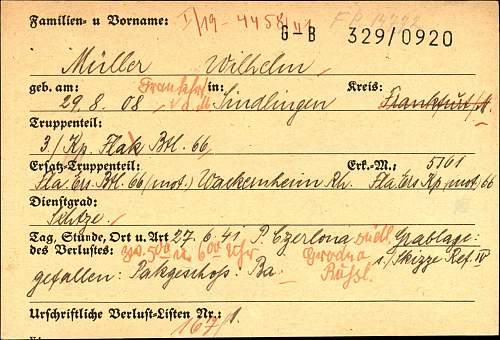 Familien- u Vorname: I/19-4458/41 F.P. 13222
G-B 329/0920
Müller Wilhelm
geb. am: Frankfurt in: Kreis:
29.8.08, a. M. Sindlingen Frankfurt/M.
Truppenteil:
3./Kp. Flak Btl. 66,
Ersatz-Truppenteil: Erk.-M.: 5161
Fla. Ers. Btl. 66 (mot.) Wackernheim Rh. Fla. Ers. Kp. mot. 66
Dienstgrad:
Schtze.
Tag, Stunde, Ort u. Art 27.6.41 P. Czerlona südl. Grablage:
des Verlustes: zw. 5 00 u. 6 00 Uhr Grodno s./Skizze Ref. IV
gefallen: Pakgeschoß: Ba Rußl.
Urschriftliche Verlust-Listen Nr.: 167/1.